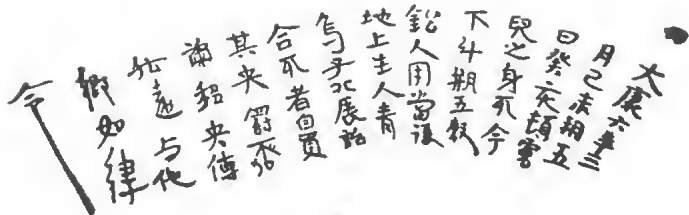 大康六年三
月己未朔五
日癸亥頓霊
兒之身死今
下斗瓶五穀
鉛人用當復
地上生人青
烏子北辰詔
令死者自受
其央罰不加
爾移央傳
咎遠与他
鄉如律
令